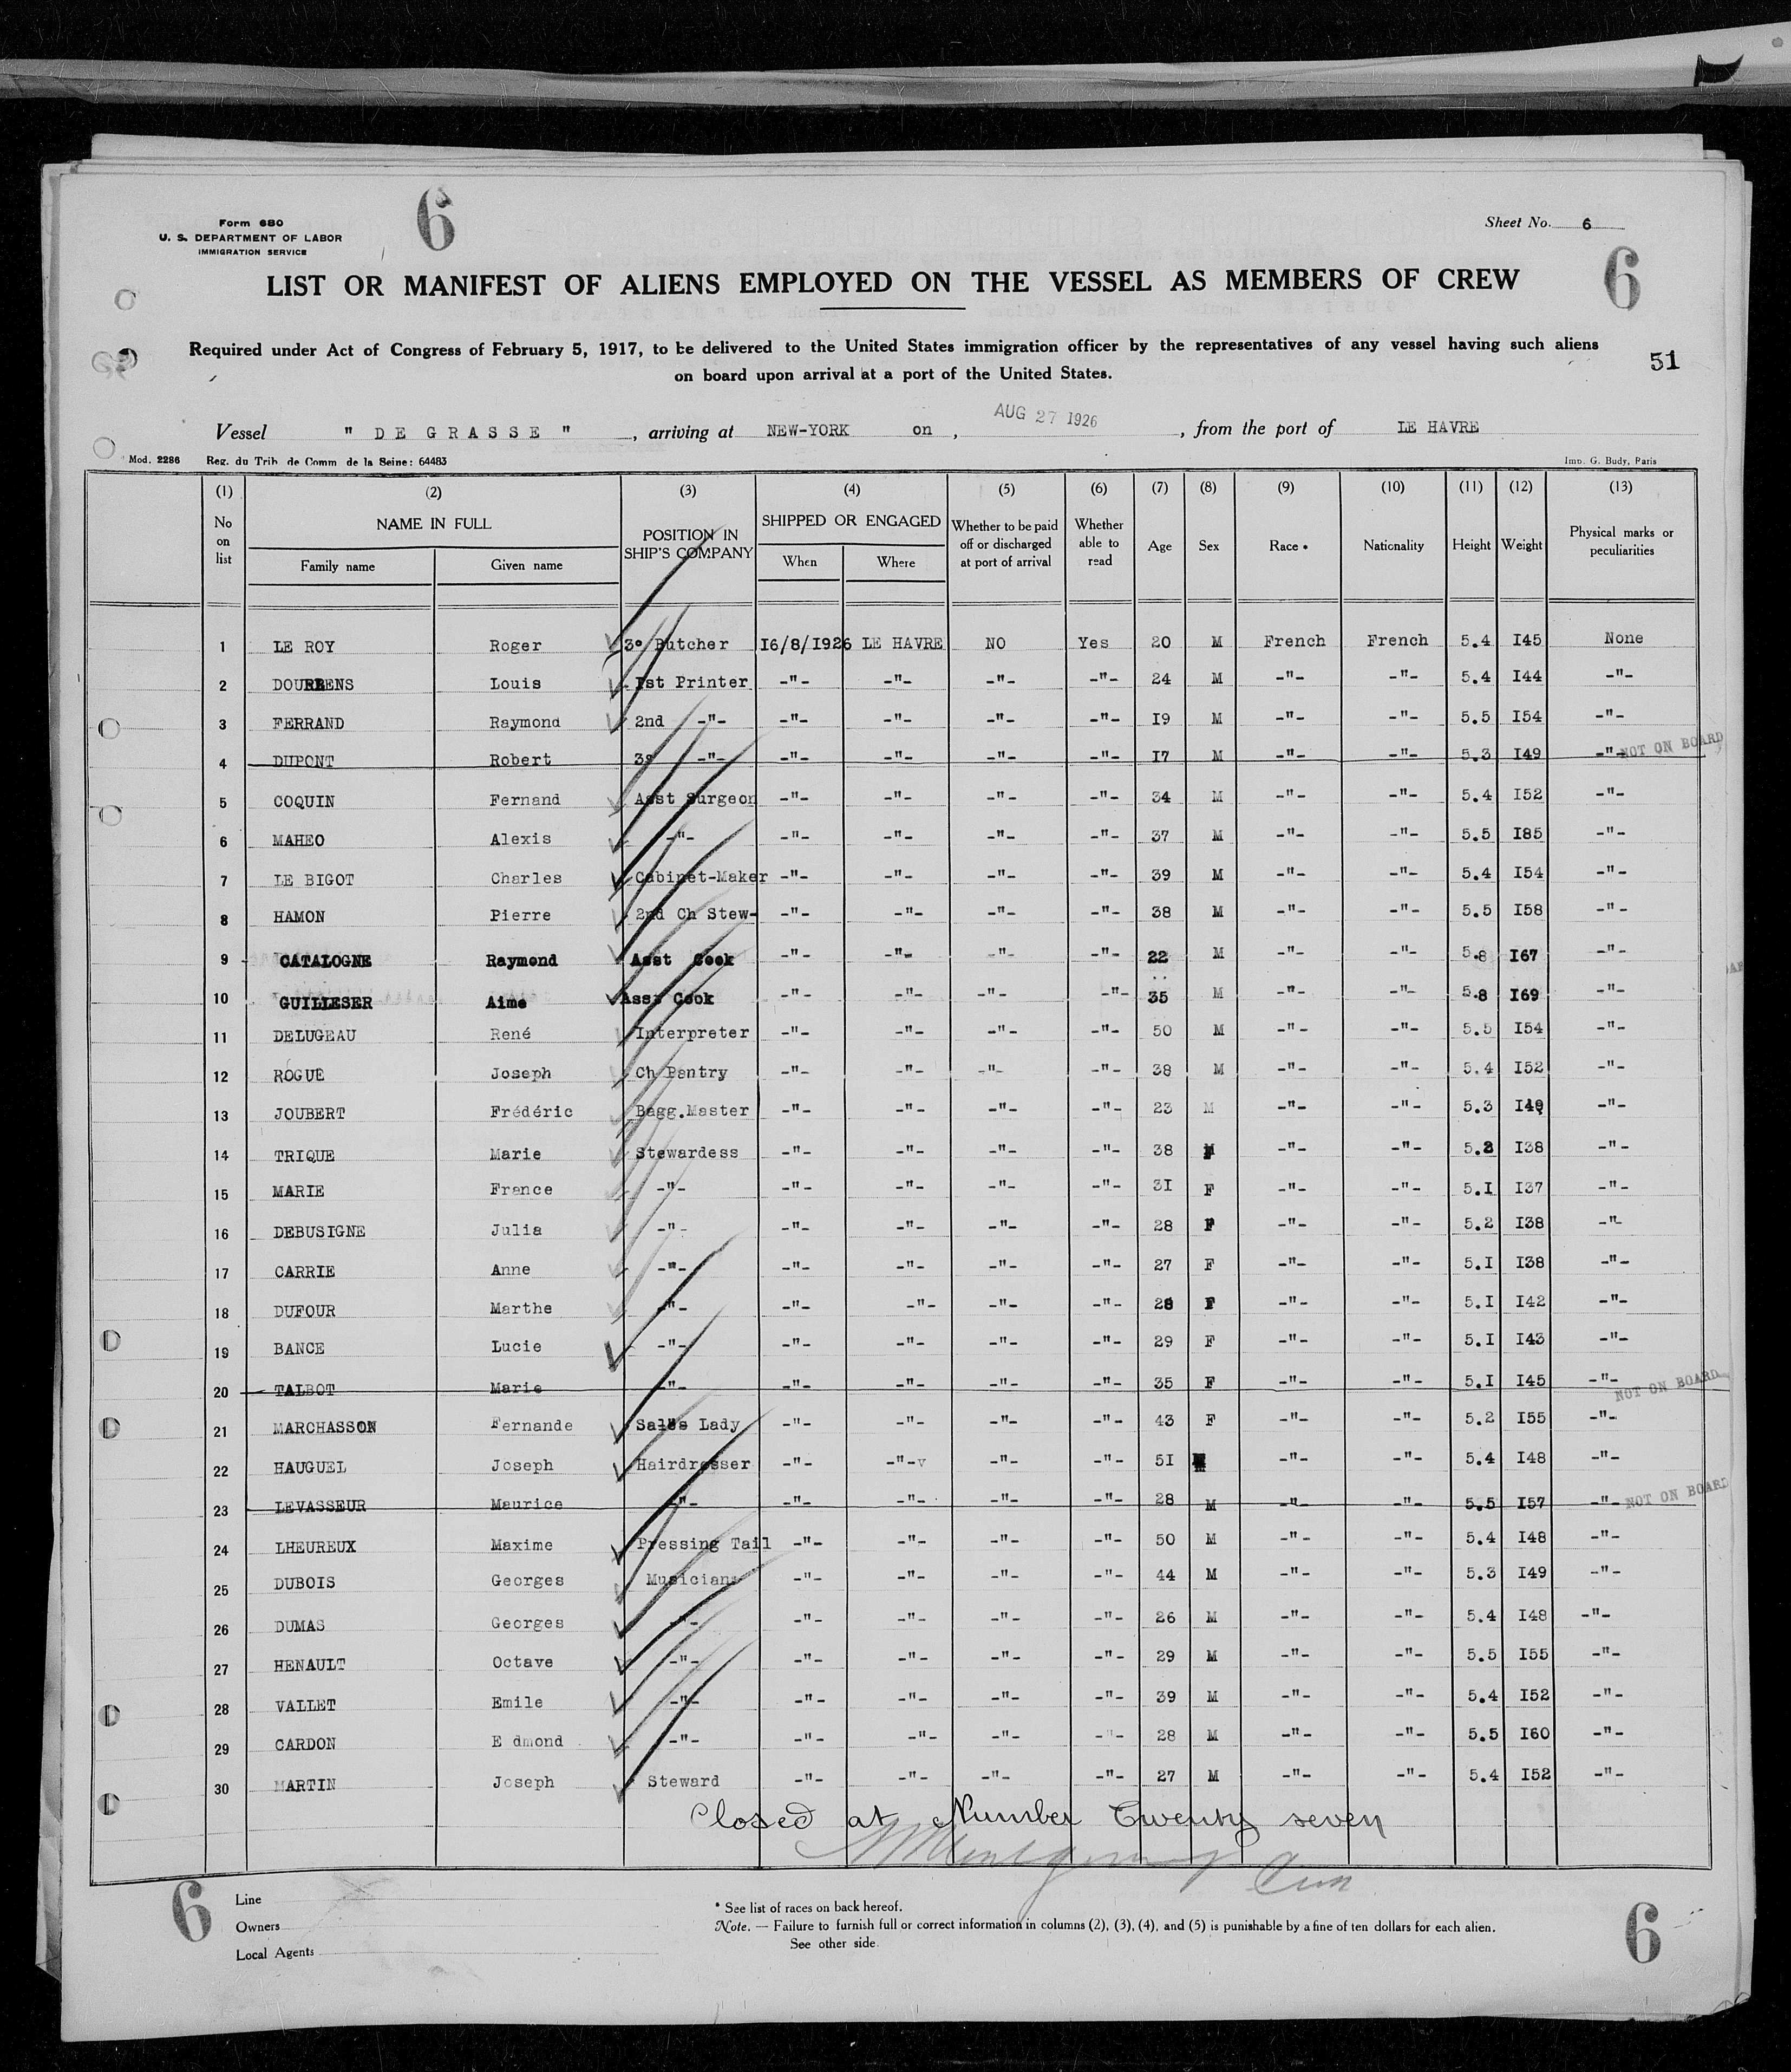 6
Form 680
U. S. DEPARTMENT OF LABOR
IMMIGRATION SERVICE
Sheet No. 6
6
LIST OR MANIFEST OF ALIENS EMPLOYED ON THE VESSEL AS MEMBERS OF CREW
Required under Act of Congress of February 5, 1917, to be delivered to the United States immigration officer by the representatives of any vessel having such aliens
on board upon arrival at a port of the United States.
51
Vessel " DE GRASSE ", arriving at NEW-YORK on , AUG 27 1926 , from the port of LE HAVRE
Mod. 2286 Reg. du Trib. de Comm de la Seine: 64483 Imp. G. Budy, Paris
(1) (2) (3) (4) (5) (6) (7) (8) (9) (10) (11) (12) (13)
No on list NAME IN FULL Family name Given name POSITION IN SHIP'S COMPANY SHIPPED OR ENGAGED When Where Whether to be paid off or discharged at port of arrival Whether able to read Age Sex Race * Nationality Height Weight Physical marks or peculiarities
1 LE ROY Roger 3° Butcher 16/8/1926 LE HAVRE NO Yes 20 M French French 5.4 I45 None
2 DOURLENS Louis Ist Printer -"- -"- -"- -"- 24 M -"- -"- 5.4 I44 -"-
3 FERRAND Raymond 2nd -"- -"- -"- -"- -"- I9 M -"- -"- 5.5 I54 -"-
4 DUPONT Robert 3° -"- -"- -"- -"- -"- I7 M -"- -"- 5.3 I49 -"- NOT ON BOARD
5 COQUIN Fernand Asst Surgeon -"- -"- -"- -"- 34 M -"- -"- 5.4 I52 -"-
6 MAHEO Alexis -"- -"- -"- -"- -"- 37 M -"- -"- 5.5 I85 -"-
7 LE BIGOT Charles Cabinet-Maker -"- -"- -"- -"- 39 M -"- -"- 5.4 I54 -"-
8 HAMON Pierre 2nd Ch Stew- -"- -"- -"- -"- 38 M -"- -"- 5.5 I58 -"-
9 CATALOGNE Raymond Asst Cook -"- -"- -"- -"- 22 M -"- -"- 5.8 I67 -"-
10 GUILLESER Aime Asst Cook -"- -"- -"- -"- 35 M -"- -"- 5.8 I69 -"-
11 DELUGEAU René Interpreter -"- -"- -"- -"- 50 M -"- -"- 5.5 I54 -"-
12 ROGUE Joseph Ch Pantry -"- -"- -"- -"- 38 M -"- -"- 5.4 I52 -"-
13 JOUBERT Frédéric Bagg.Master -"- -"- -"- -"- 23 M -"- -"- 5.3 I49 -"-
14 TRIQUE Marie Stewardess -"- -"- -"- -"- 38 F -"- -"- 5.2 I38 -"-
15 MARIE France -"- -"- -"- -"- -"- 3I F -"- -"- 5.I I37 -"-
16 DEBUSIGNE Julia -"- -"- -"- -"- -"- 28 F -"- -"- 5.2 I38 -"-
17 CARRIE Anne -"- -"- -"- -"- -"- 27 F -"- -"- 5.I I38 -"-
18 DUFOUR Marthe -"- -"- -"- -"- -"- 28 F -"- -"- 5.I I42 -"-
19 BANCE Lucie -"- -"- -"- -"- -"- 29 F -"- -"- 5.I I43 -"-
20 TALBOT Marie -"- -"- -"- -"- -"- 35 F -"- -"- 5.I I45 -"- NOT ON BOARD
21 MARCHASSON Fernande Sales Lady -"- -"- -"- -"- 43 F -"- -"- 5.2 I55 -"-
22 HAUGUEL Joseph Hairdresser -"- -"-v -"- -"- 5I M -"- -"- 5.4 I48 -"-
23 LEVASSEUR Maurice -"- -"- -"- -"- -"- 28 M -"- -"- 5.5 I57 -"- NOT ON BOARD
24 LHEUREUX Maxime Pressing Tail -"- -"- -"- -"- 50 M -"- -"- 5.4 I48 -"-
25 DUBOIS Georges Musicians -"- -"- -"- -"- 44 M -"- -"- 5.3 I49 -"-
26 DUMAS Georges -"- -"- -"- -"- -"- 26 M -"- -"- 5.4 I48 -"-
27 HENAULT Octave -"- -"- -"- -"- -"- 29 M -"- -"- 5.5 I55 -"-
28 VALLET Emile -"- -"- -"- -"- -"- 39 M -"- -"- 5.4 I52 -"-
29 CARDON E dmond -"- -"- -"- -"- -"- 28 M -"- -"- 5.5 I60 -"-
30 MARTIN Joseph Steward -"- -"- -"- -"- 27 M -"- -"- 5.4 I52 -"-
Closed at Number Twenty seven
6
Line
Owners
Local Agents
* See list of races on back hereof.
Note. — Failure to furnish full or correct information in columns (2), (3), (4), and (5) is punishable by a fine of ten dollars for each alien.
See other side.
6